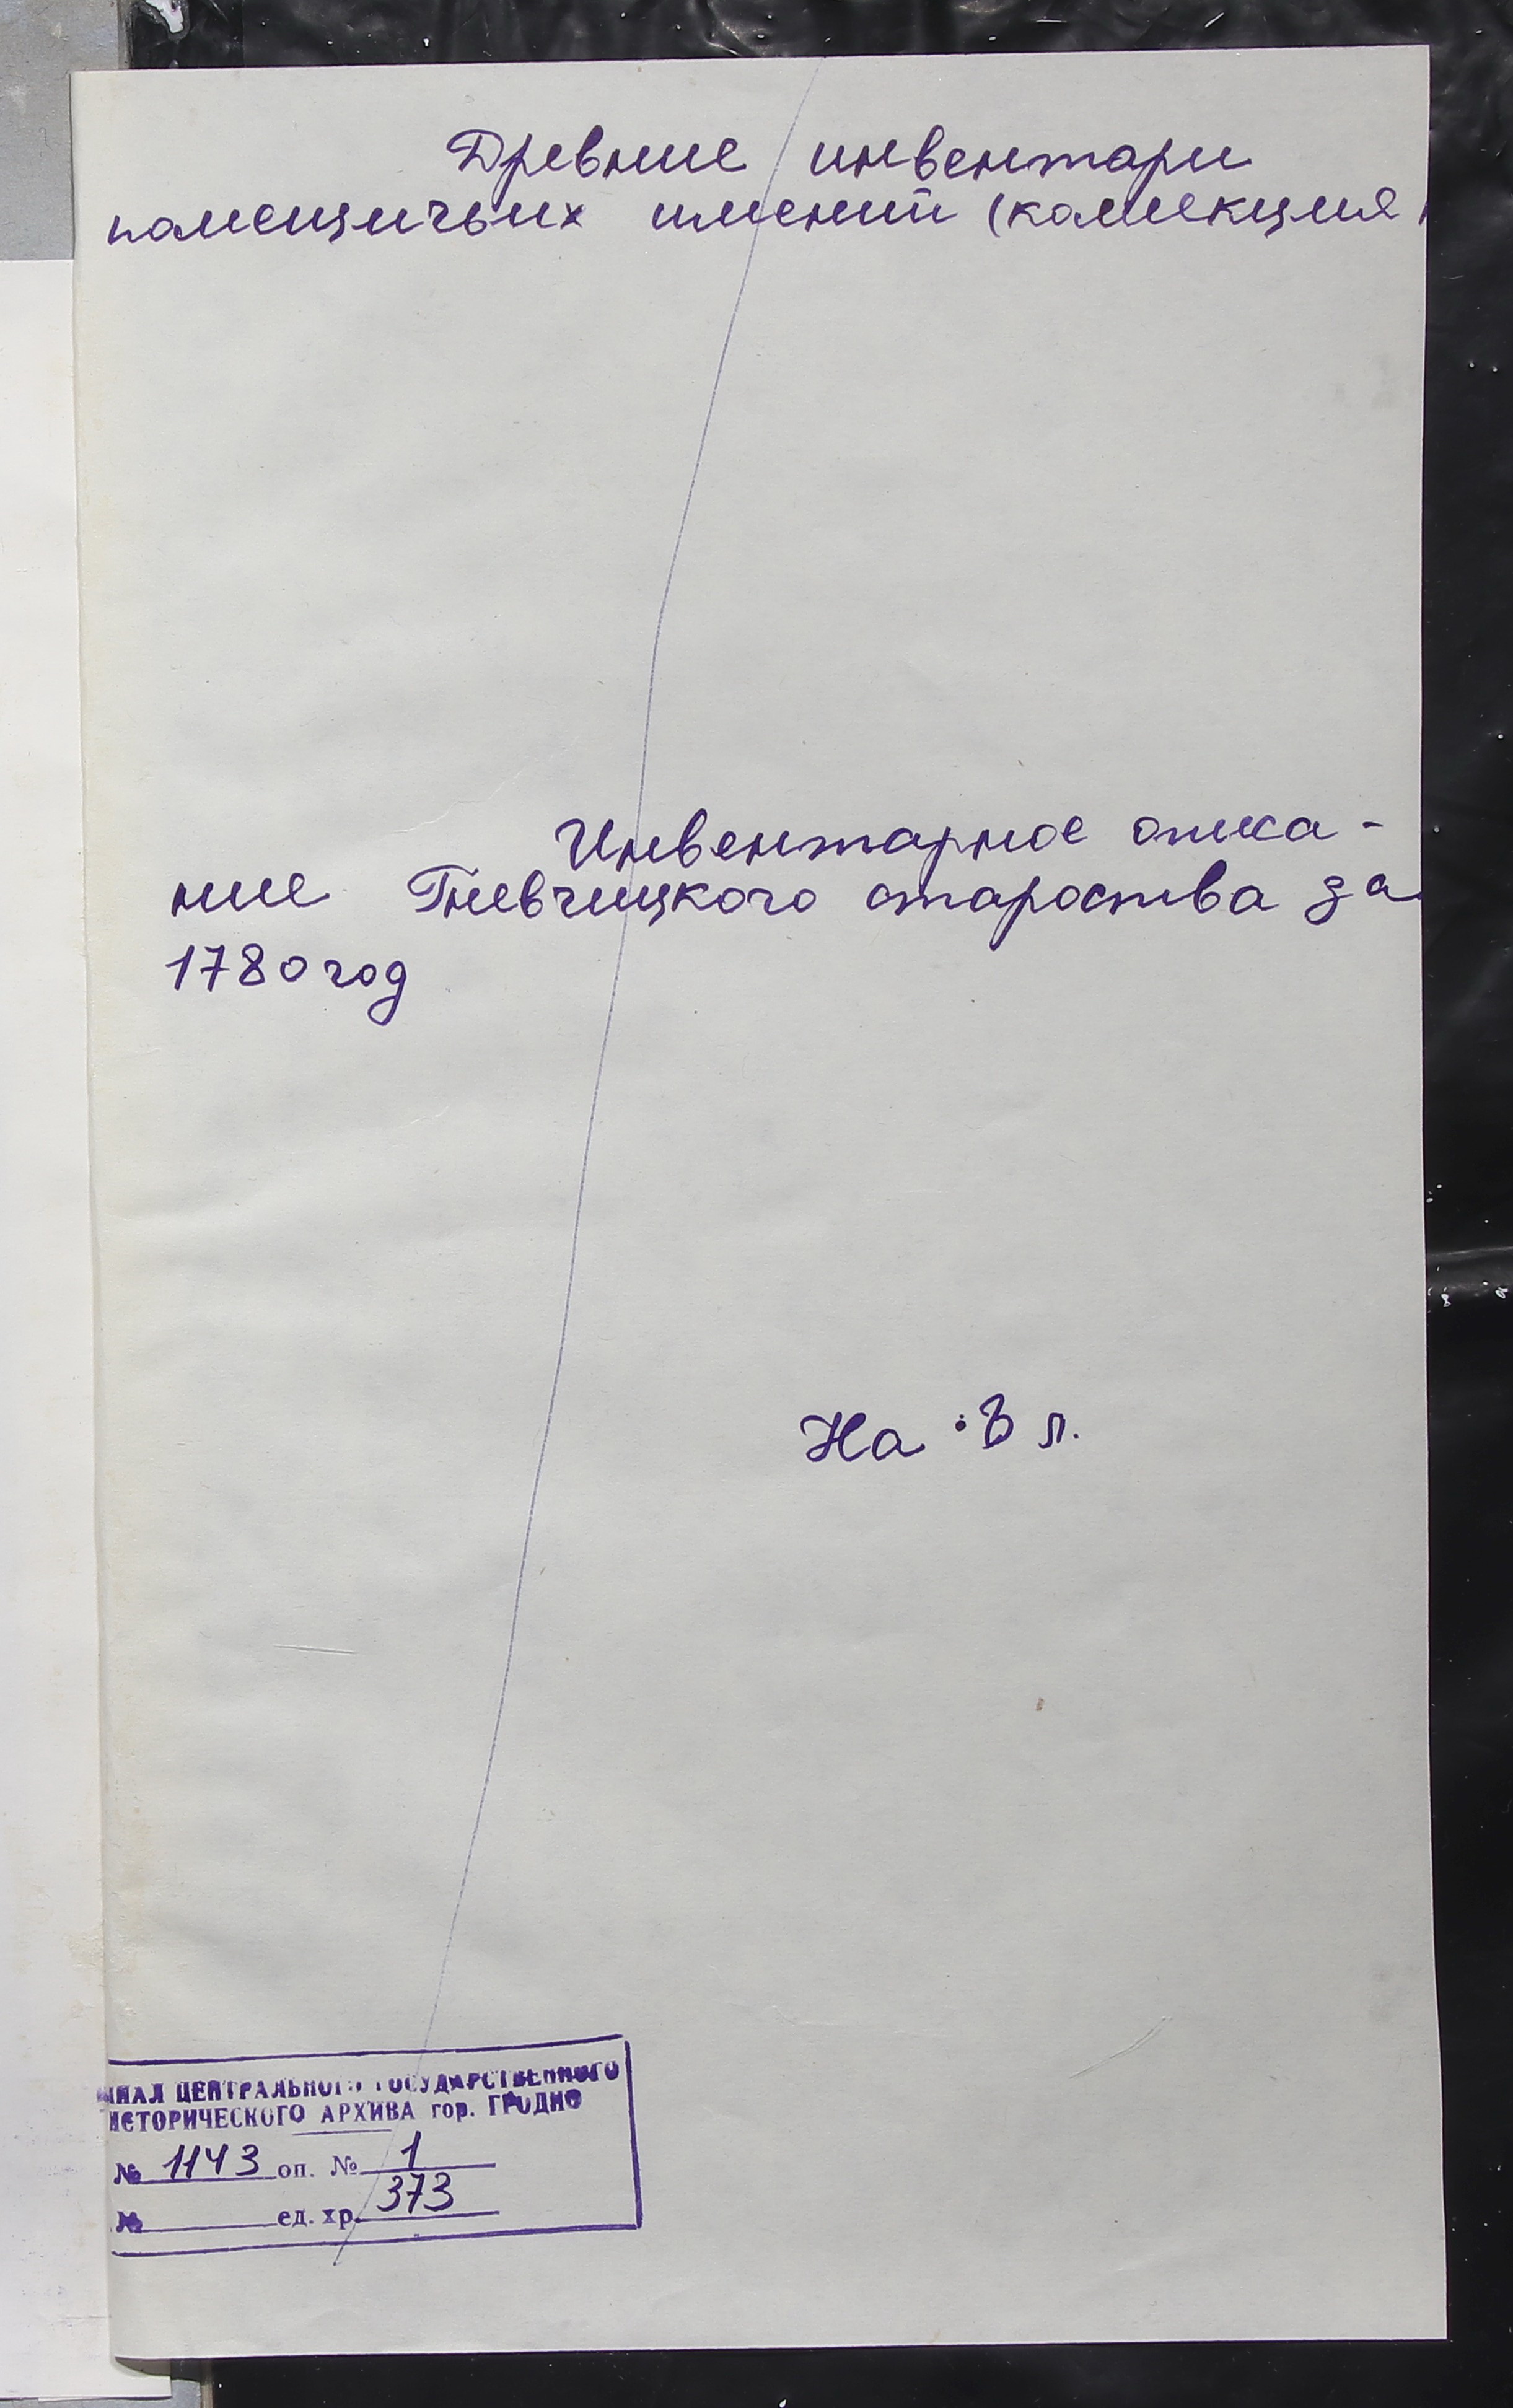 Древние инвентари
помещичьих имений (коллекция)
Инвентарное описа-
ние Гневчицкого староства за
1780 год
На л.
ЦЕНТРАЛЬНОГО ГОСУДАРСТВЕННОГО
ИСТОРИЧЕСКОГО АРХИВА гор. ГРОДНО
№ 1143 оп. № 1
№ ед. хр. 373